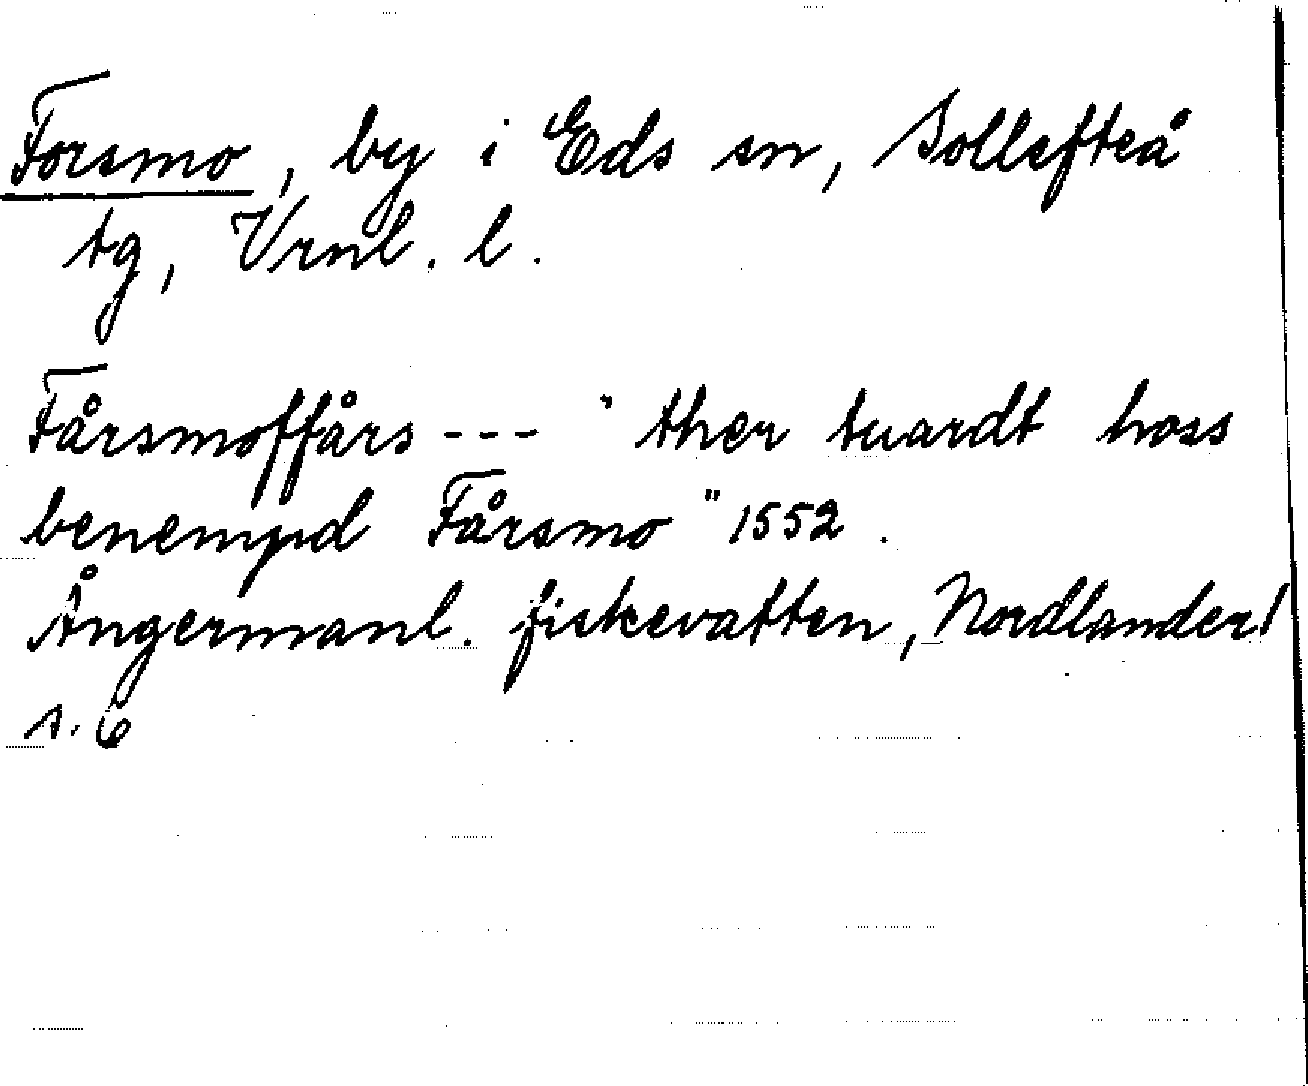 Forsmo, by i Eds sn, Sollefteå
tg, Vrnl. l.
Fårsmoffårs --- "ther tuardt hoss
benempd Fårsmo" 1552.
Ångermanl. fiskevatten, Nordlander
s. 6